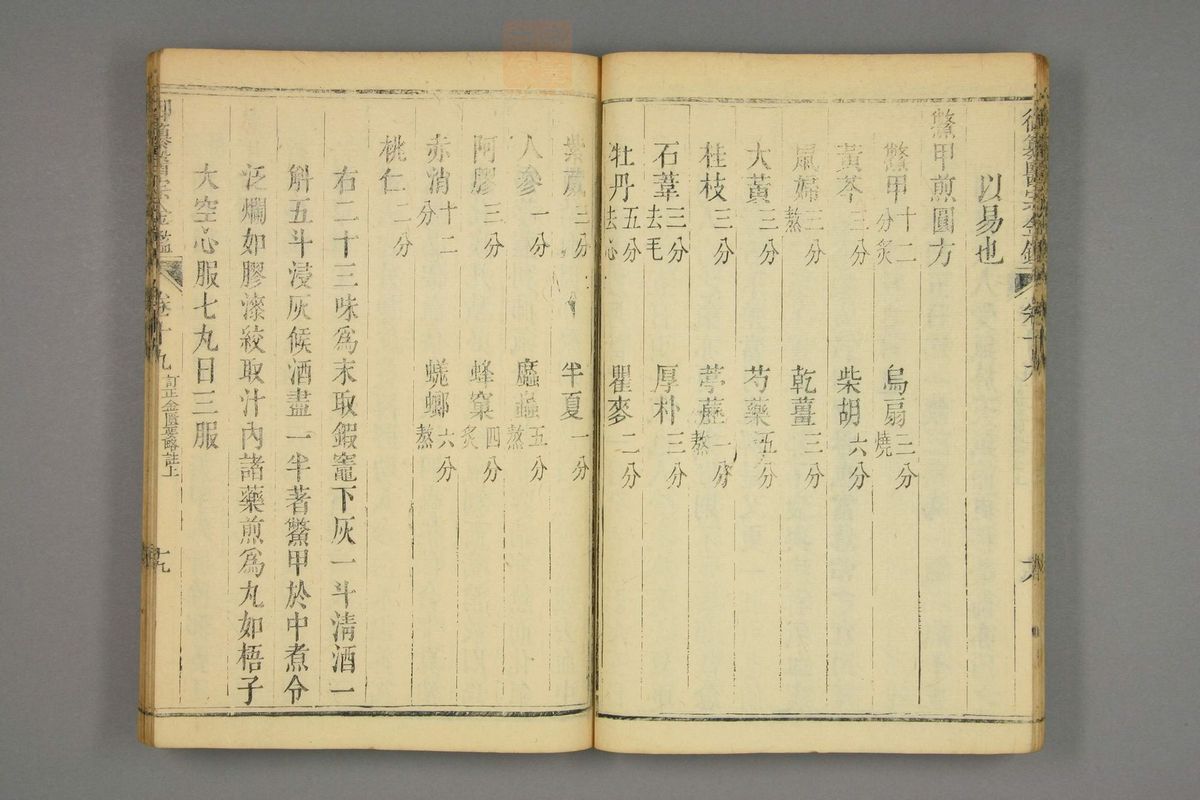 以易也
鱉甲煎圓方
鱉甲十二分炙　烏扇三分燒
黃芩三分　柴胡六分
鼠婦三分熬　乾薑三分
大黃三分　芍藥五分
桂枝三分　葶藶一分熬
石葦三分去毛　厚朴三分
牡丹五分去心　瞿麥二分
紫葳三分　半夏一分
人參一分　䗪蟲五分熬
阿膠三分　蜂窠四分炙
赤消十二分　蜣螂六分熬
桃仁二分
右二十三味為末取鍜竈下灰一斗淸酒一
斛五斗浸灰候酒盡一半著鱉甲於中煮令
泛爛如膠漆絞取汁內諸藥煎為丸如梧子
大空心服七丸日三服
御纂醫宗金鑑　卷十九　訂正金匱要略註上　十九